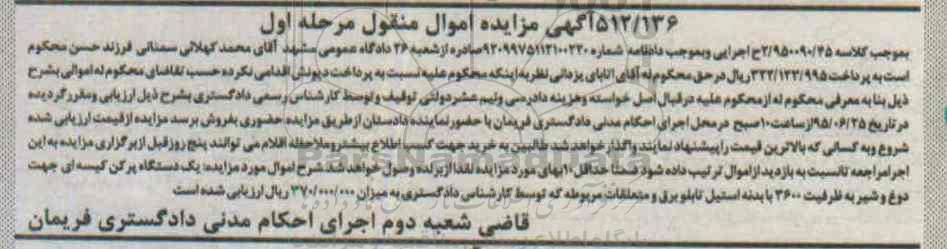 ۵۱۲/۱۳۶آگهی مزایده اموال منقول مرحله اول
بموجب کلاسه ۲/۹۵۰۰۹۰/۴۵ج اجرایی وبموجب دادنامه شماره ۹۲۰۹۹۷۵۱۱۲۱۰۰۲۲۰صادره ازشعبه ۲۶ دادگاه عمومی مشهد آقای محمد کهلائی سمنانی فرزند حسن محکوم
است به پرداخت ۳۲۲/۱۲۳/۹۹۵ریال در حق محکوم له آقای اتابای یزدانی نظربه اینکه محکوم علیه نسبت به پرداخت دیونش اقدامی نکرده حسب تقاضای محکوم له اموالی بشرح
ذیل بنا به معرفی محکوم له ازمحکوم علیه درقبال اصل خواسته وهزینه دادرسی ونیم عشردولتی توقیف وتوسط کارشناس رسمی دادگستری بشرح ذیل ارزیابی ومقررگردیده
در تاریخ ۹۵/۰۶/۲۵ازساعت۱۰صبح درمحل اجرای احکام مدنی دادگستری فریمان با حضورنماینده دادستان ازطریق مزایده حضوری بفروش برسد مزایده ازقیمت ارزیابی شده
شروع وبه کسانی که بالاترین قیمت راپیشنهاد نمایند واگذارخواهد شد طالبین به خرید جهت کسب اطلاع بیشتروملاحظه اقلام می توانند پنج روزقبل ازبرگزاری مزایده به این
اجرا مراجعه تانسبت به بازدید ازاموال ترتیب داده شود ضمنا حداقل ۱۰بهای مورد مزایده نقدا ازبرنده وصول خواهد شد شرح اموال مورد مزایده: یک دستگاه پرکن کیسه ای جهت
دوغ و شیر به ظرفیت ۳۶۰۰ با بدنه استیل تابلو برق و متعلقات مربوطه که توسط کارشناس دادگستری به میزان ۳۷۰/۰۰۰/۰۰۰ ریال ارزیابی شده است
قاضی شعبه دوم اجرای احکام مدنی دادگستری فریمان
ParsNamadData